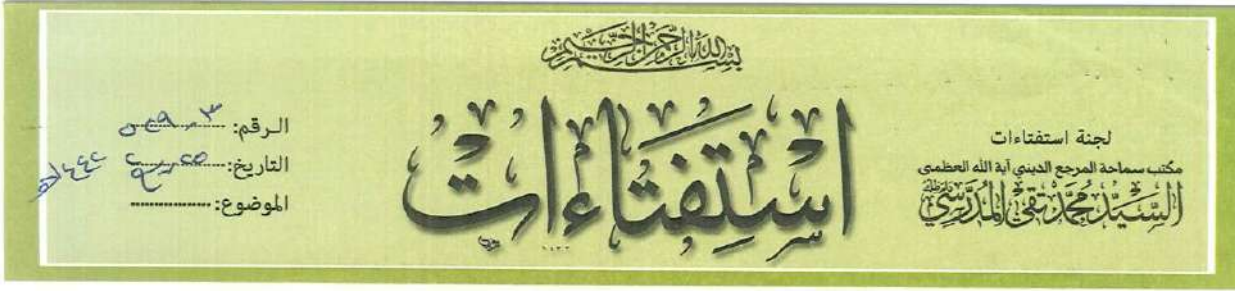 بسم الله الرحمن الرحيم
لجنة استفتاءات
مكتب سماحة المرجع الديني آية الله العظمى
السيد محمد تقي المدرسي
استفتاءات
١٤٣٣
الرقم:
التاريخ:
الموضوع: